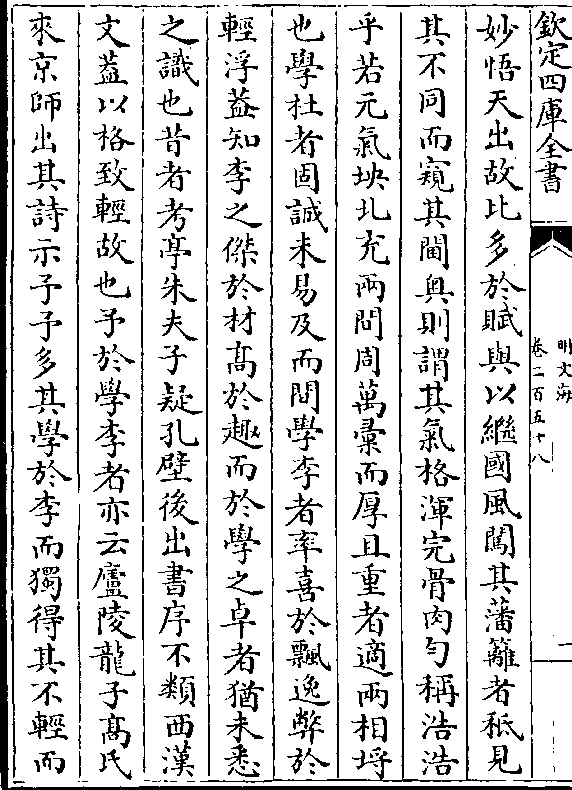 欽定四庫全書
明文海
卷二百五十八
一
妙悟天出故比多於賦與以繼國風闖其藩籬者秪見
其不同而窺其閫奥則謂其氣格渾完骨肉勻稱浩浩
乎若元氣坱圠充兩間周萬彚而厚且重者適兩相埓
也學杜者固誠未易及而間學李者率喜於飄逸弊於
輕浮葢知李之傑於材髙於趣而於學之卓者猶未悉
之識也昔者考亭朱夫子疑孔壁後出書序不類西漢
文葢以格致輕故也予於學李者亦云廬陵龍子髙氏
來京師出其詩示予予多其學於李而獨得其不輕而